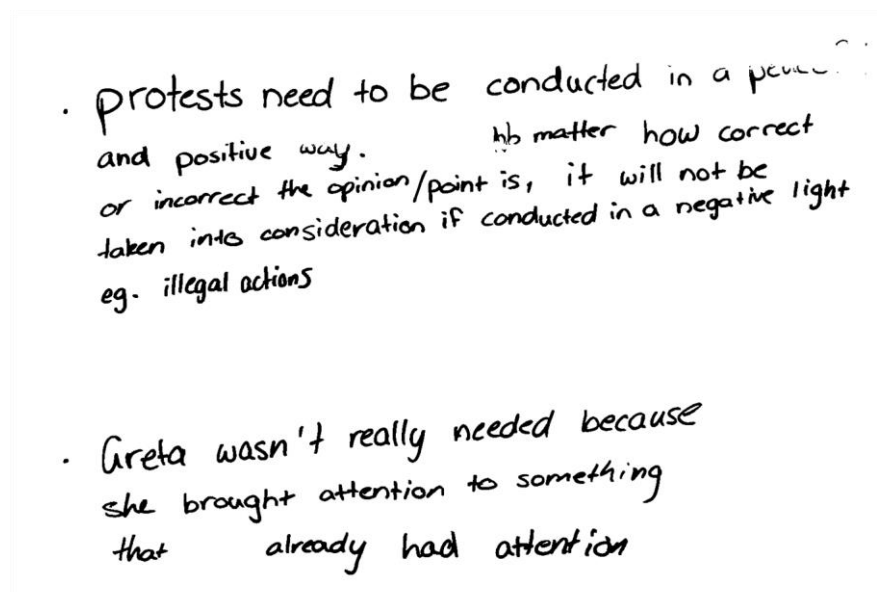 . protests need to be conducted in a
and positive way. no matter how correct
or incorrect the opinion/point is, it will not be
taken into consideration if conducted in a negative light
eg. illegal actions
. Greta wasn't really needed because
she brought attention to something
that already had attention